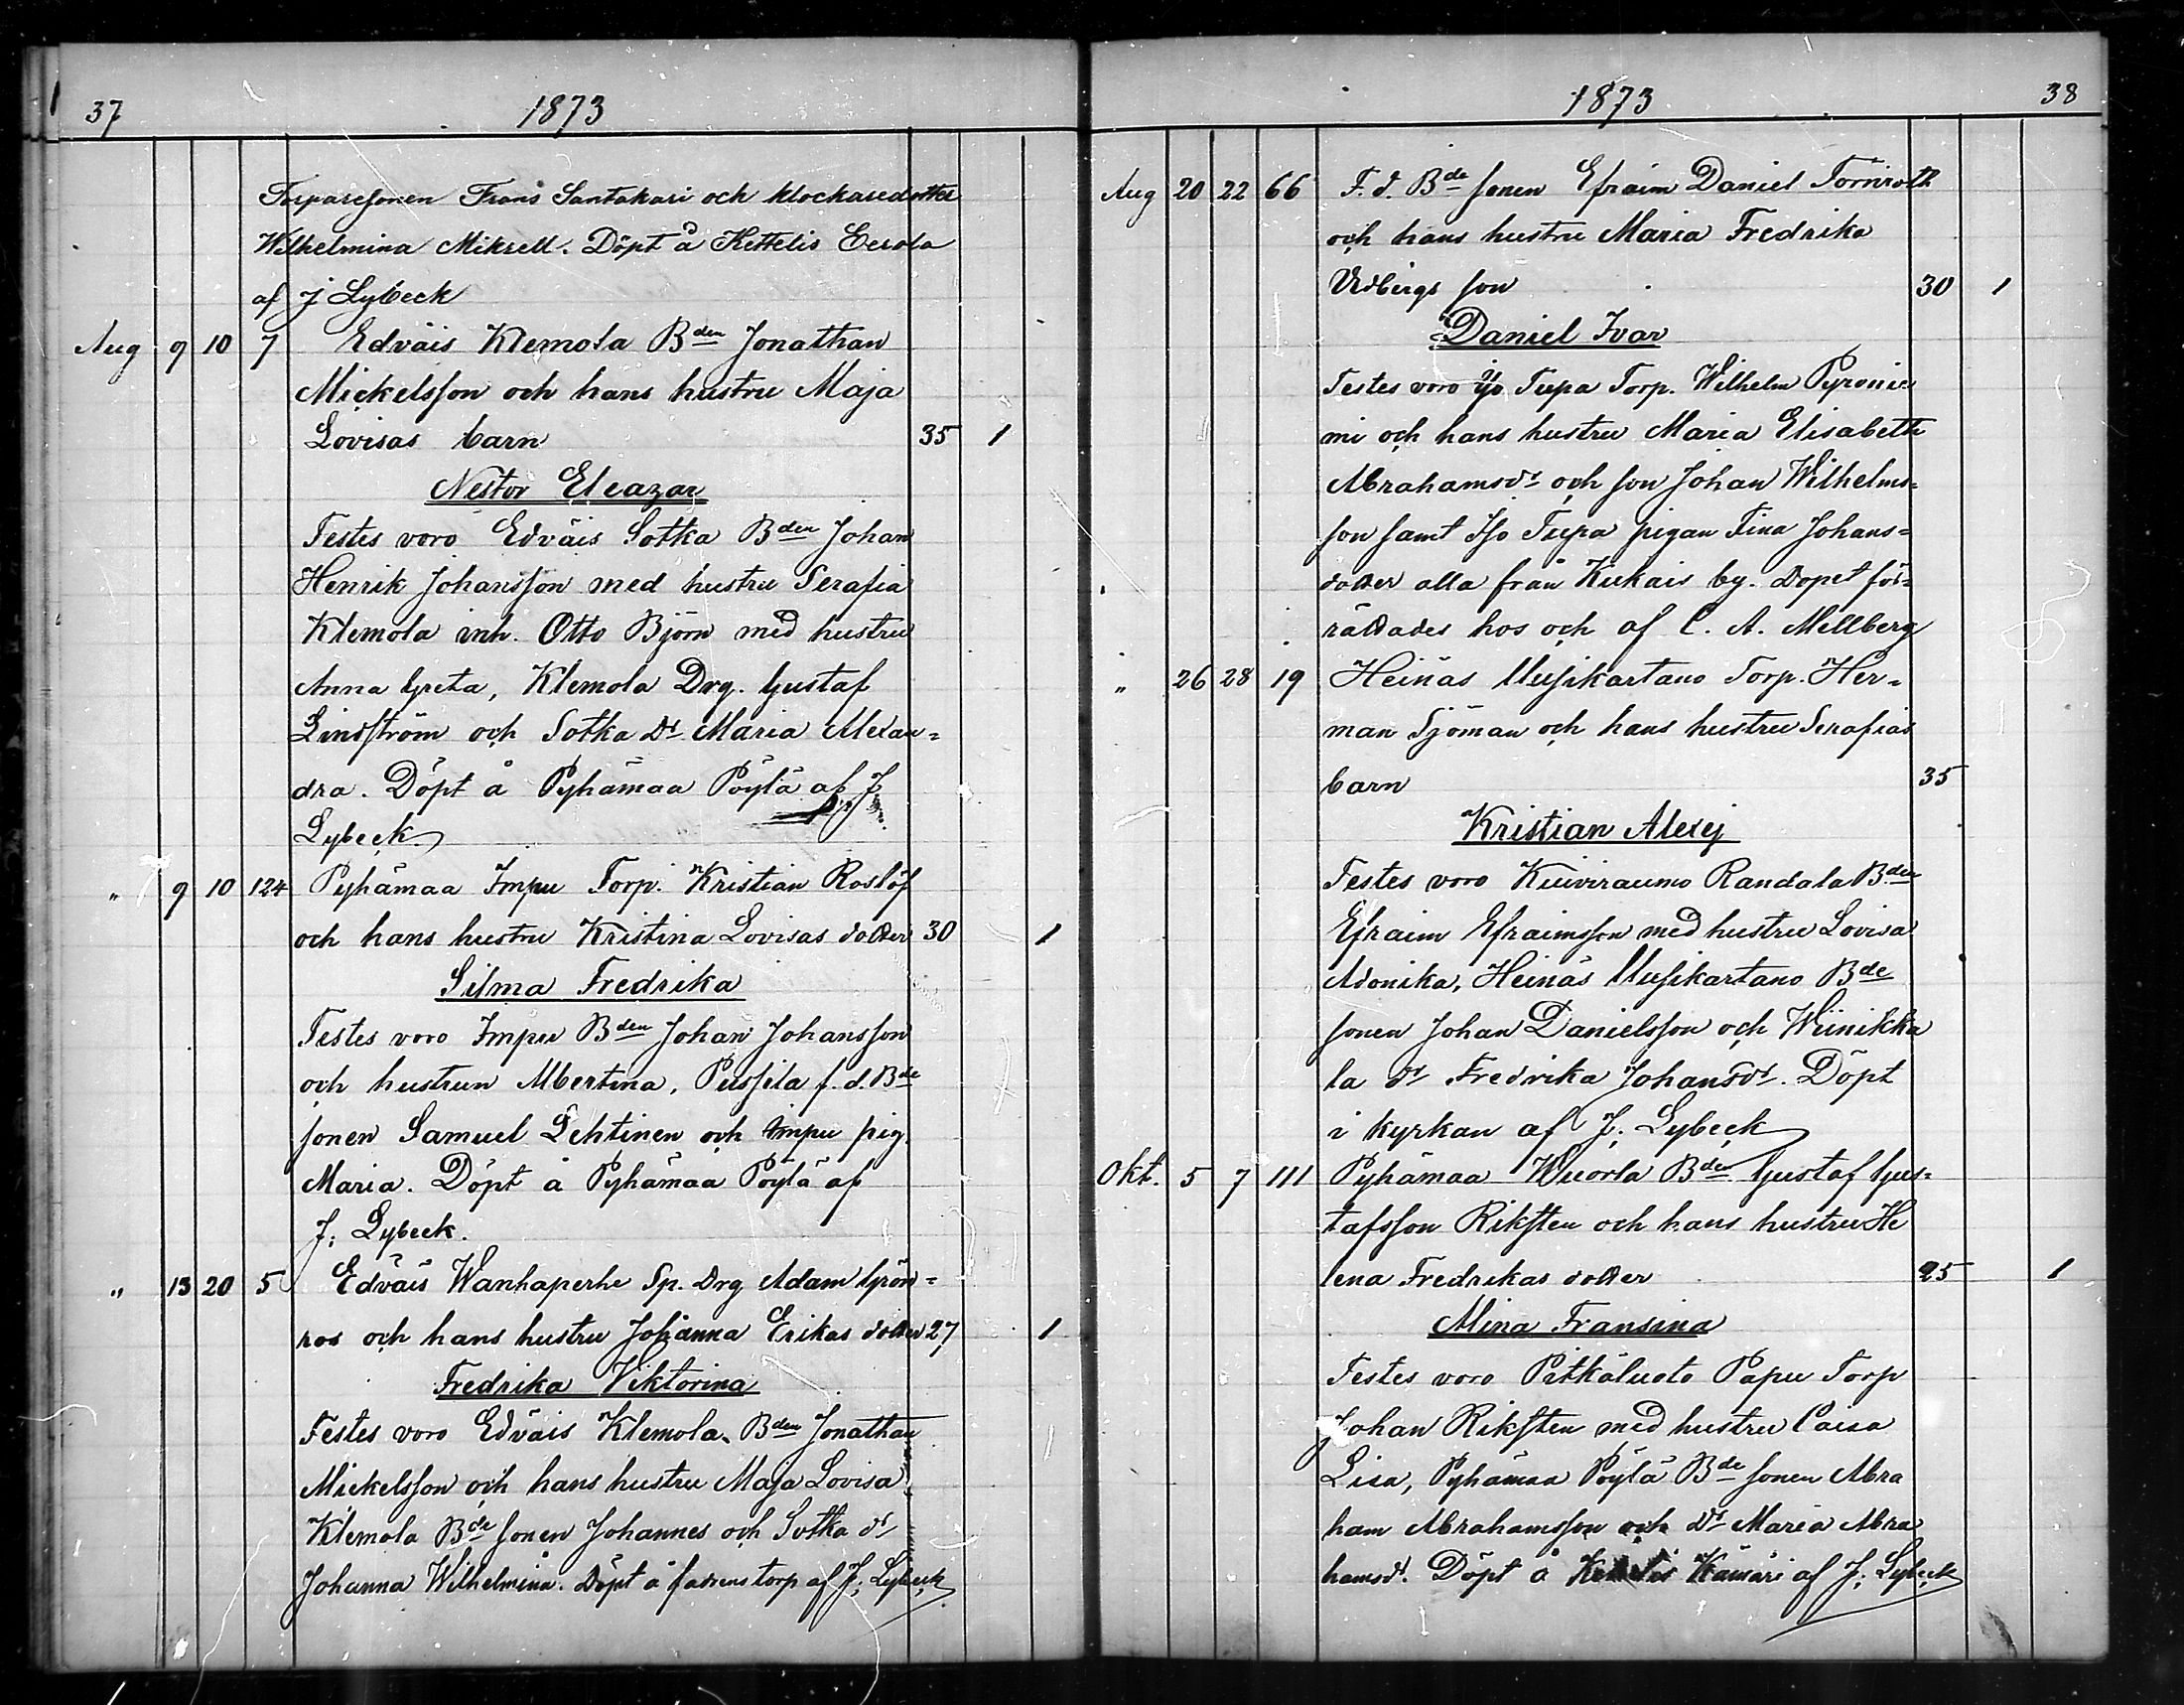 37
1873
Torparesonen Frans Santakari och klockaredotter
Wilhelmina Mikrell. Döpt å Kettelis Eerola
af J Lybeck
Aug 9 10 7 Edväis Klemola Bden Jonathan
Mickelsson och hans hustru Maja
Lovisas barn 35 1
Nestor Eleazar
Testes voro Edväis Sotka Bden Johan
Henrik Johansson med hustru Serafia
Klemola inh. Otto Björn med hustru
Anna Greta, Klemola Drg. Gustaf
Lindström och Sotka dr Maria Alexan=
dra. Döpt å Pyhämaa Pöylä af J
Lybeck
" 9 10 124 Pyhämaa Impu Torp. Kristian Roslöf
och hans hustru Kristina Lovisas dotter 30 1
Silma Fredrika
Testes voro Impu Bden Johan Johansson
och hustrun Albertina, Pussila f. d. Bde
sonen Samuel Lehtinen och Impu pig.
Maria. Döpt å Pyhämaa Pöylä af
J. Lybeck.
" 13 20 5 Edväis Wanhaperhe Sp. Drg Adam Grön=
ros och hans hustru Johanna Erikas dotter 27 1
Fredrika Viktorina
Testes voro Edväis Klemola Bden Jonathan
Mickelsson och hans hustru Maja Lovisa
Klemola Bde sonen Johannes och Sotka dr
Johanna Wilhelmina. Döpt å fadrens torp af J. Lybeck
1873
38
Aug 20 22 66 F. d. Bde sonen Efraim Daniel Törnroth
och hans hustru Maria Fredrika
Widbergs son 30 1
Daniel Ivar
Testes voro Iso Tupa Torp. Wilhelm Pyronie
mi och hans hustru Maria Elisabeth
Abrahamsdr och son Johan Wilhelms=
son samt Iso Tupa pigan Fina Johans=
dotter alla från Kukais by. Dopet för=
rättades hos och af C. A. Mellberg
" 26 28 19 Heinäs Uusikartano Torp. Her=
man Sjöman och hans hustru Serafias
barn 35
Kristian Alexej
Testes voro Kuiviraumo Randala Bden
Efraim Efraimsson med hustru Lovisa
Adonika, Heinäs Uusikartano Bde
sonen Johan Danielsson och Wiinikka
la dr Fredrika Johansdr. Döpt
i kyrkan af J. Lybeck
Okt. 5 7 111 Pyhämaa Wuorla Bden Gustaf Gus=
tafsson Riksten och hans hustru He
lena Fredrikas dotter 25 1
Mina Fransina
Testes voro Pitkäluoto Papu Torp
Johan Riksten med hustru Caisa
Lisa, Pyhämaa Pöylä Bde sonen Abra
ham Abrahamsson och dr Maria Abra
hamsdr. Döpt å Kämäri af J. Lybeck